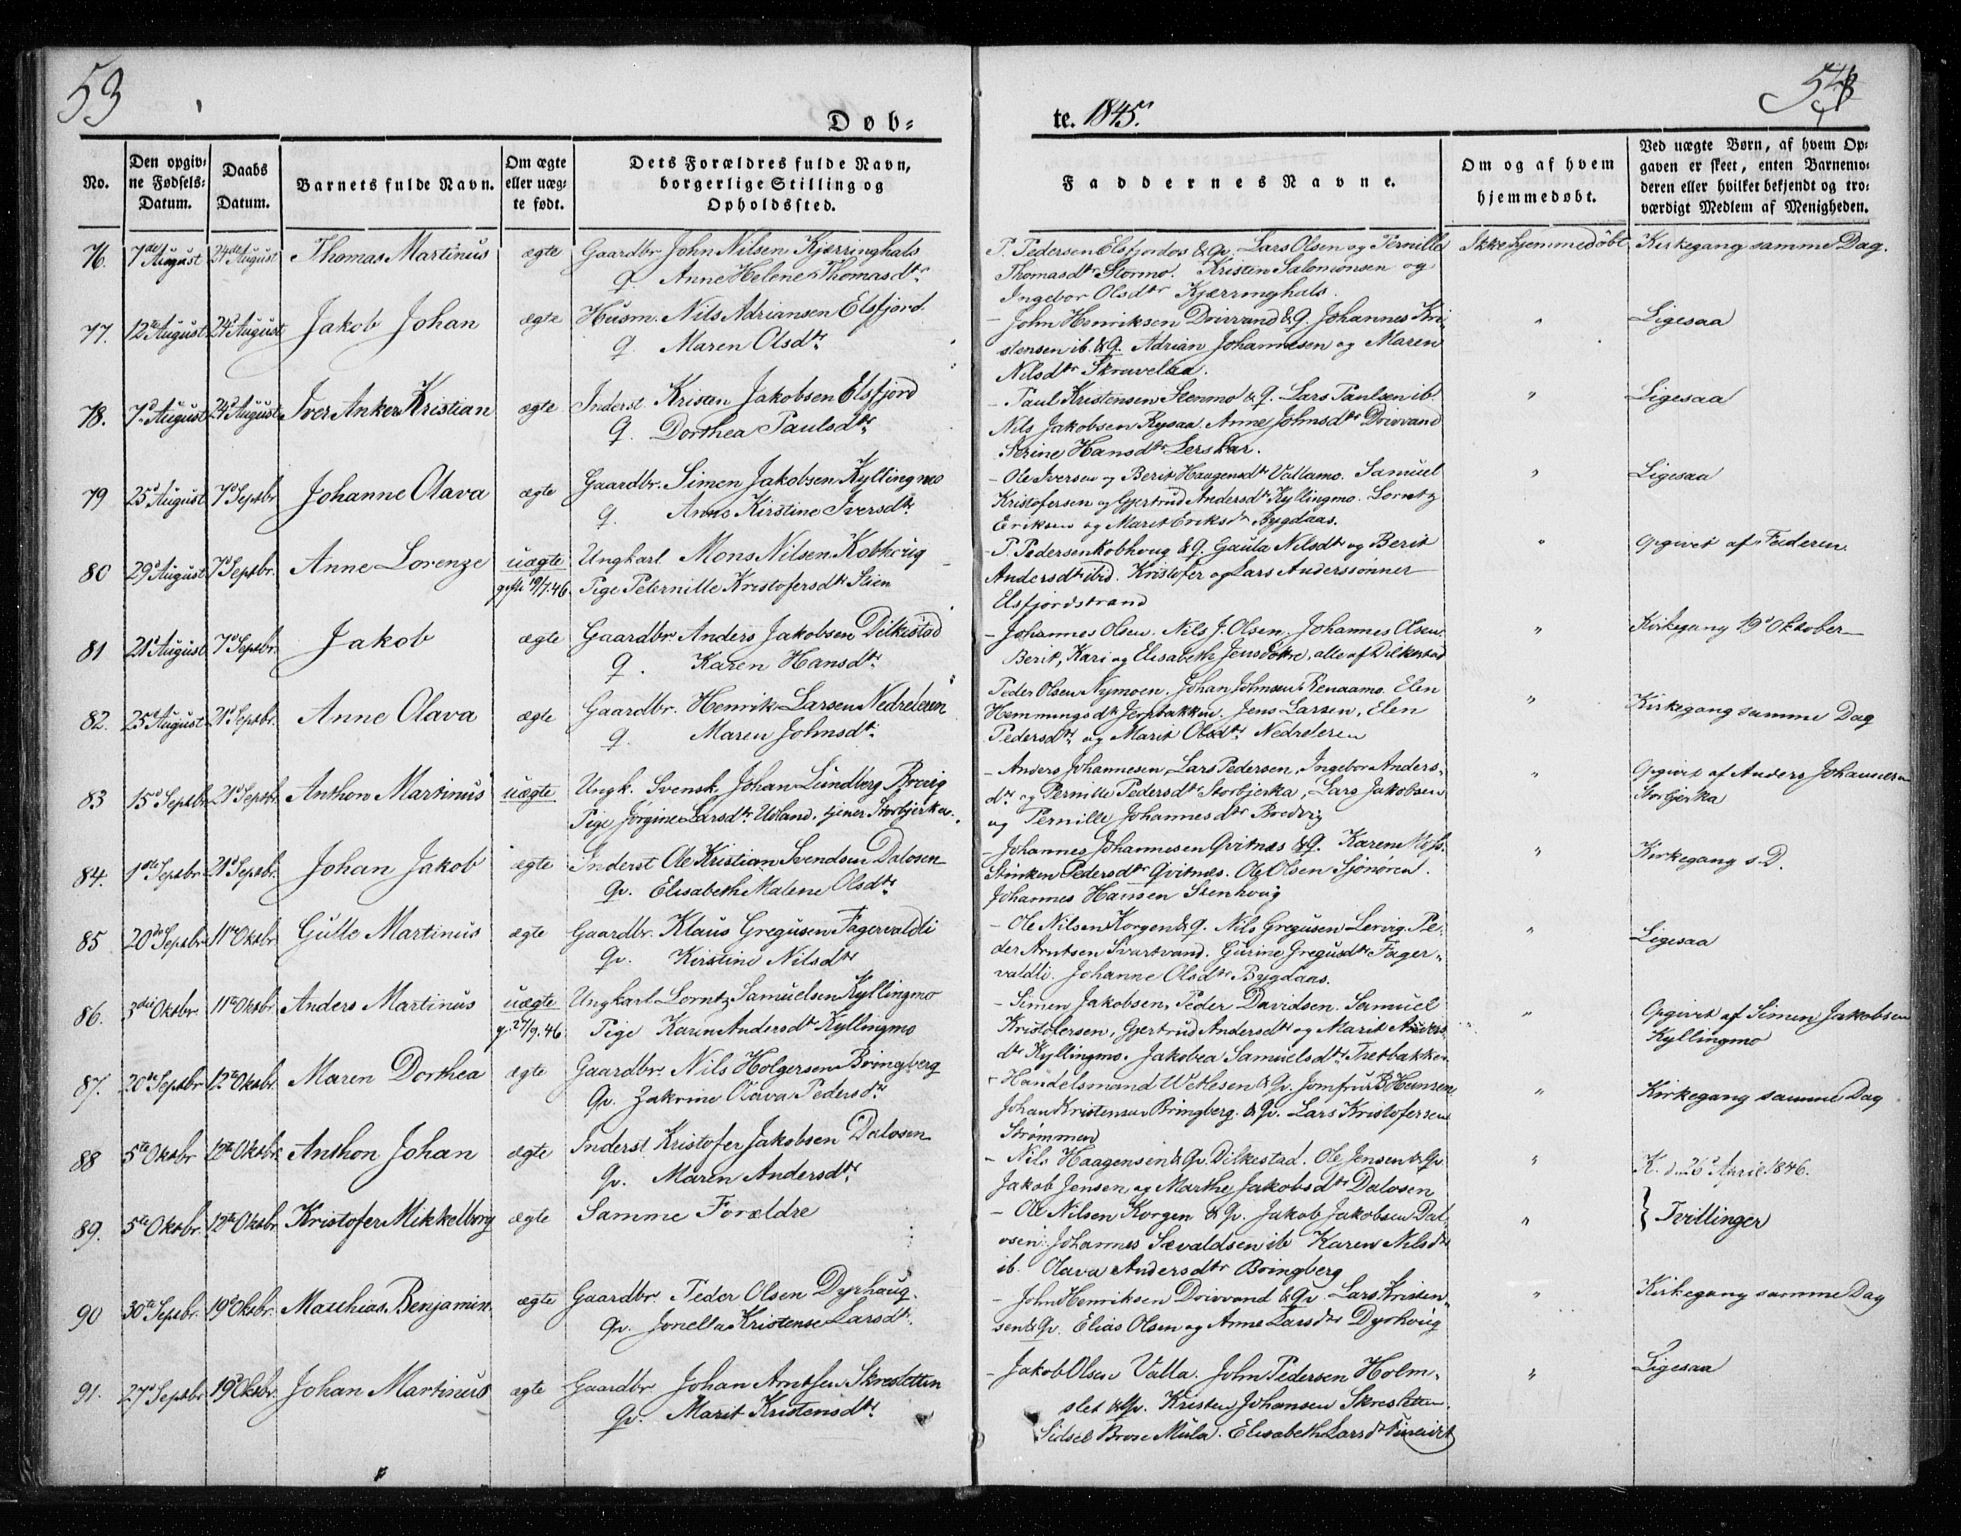 53
54
Døb-
te. 1845.
No.
Den opgiv-
ne Fødsels-
Datum.
Daabs
Datum.
Barnets fulde Navn.
Om ægte
eller uæg-
te født.
Dets Forældres fulde Navn,
borgerlige Stilling og
Opholdssted.
Faddernes Navne.
Om og af hvem
hjemmedøbt.
Ved uægte Børn, af hvem Op-
gaven er skeet, enten Barnemo-
deren eller hvilket bekjendt og tro-
værdigt Medlem af Menigheden.
76. 7de August 24de August Thomas Martinus ægte Gaardbr. John Nilsen Kjærringhals
Q. Anne Helene Thomasdtr
P. Pedersen Elsfjordos & Qv. Lars Olsen og Pernille
Thomasdtr Stormo. Kristen Salomonsen og
Ingebor Olsdtr Kjærringhals.
Ikke hjemmedøbt Kirkegang samme Dag.
77. 12te August 24d August Jakob Johan ægte Husm. Nils Adriansen Elsfjord
Q. Maren Olsdtr
- John Henriksen Drivvand & Q. Johannes Kri-
stensen ib. & Q. Adrian Johannesen og Maren
Nilsdtr Skravelaa.
" Ligesaa
78. 7d August 24d August Iver Anker Kristian ægte Inderst. Kristen Jakobsen Elsfjord
Q. Dorthea Paulsdtr
- Paul Kristensen Stenmo & Q. Lars Paulsen ib.
Nils Jakobsen Rysaa. Anne Johnsdtr Drivvand
Serine Hansdtr Lerskar.
" Ligesaa
79 25d August 7d Septbr. Johanne Olava ægte Gaardbr. Simen Jakobsen Kyllingmo
Q. Anne Kirstine Iversdtr
- Ole Iversen og Berit Haagensdtr Vallamo. Samuel
Kristofersen og Gjertrud Andersdtr Kyllingmo. Lorntz
Eriksen og Marit Eriksdtr Bygdaas.
" Ligesaa
80 29d August 7d Septbr. Anne Lorenze uægte Ungkarl Mons Nilsen Kobhoug
gifte 19/7.46. Pige Peternille Kristofersdtr Stien
- P. Pedersen Kobhoug & Q. Gaula Nilsdtr og Berit
Andersdtr ibid. Kristofer og Lars Anderssønner
Elsfjordstrand
" Opgivet af Faderen
81 21d August 7d Septbr. Jakob ægte Gaardbr Anders Jakobsen Dilkestad
Q. Karen Hansdtr
- Johannes Olsen. Nils J. Olsen. Johannes Olsen.
Berit, Kari og Elisabeth Jensdøtre, alle af Dilkestad
" Kirkegang 19d Oktober
82. 25d August 21d Septbr. Anne Olava ægte Gaardbr. Henrik Larsen Nedreleren
Q. Maren Johnsdtr
Peder Olsen Nymoen. Johan Johnsen Renaamo. Elen
Hemmingsdtr Jerpbakken. Jens Larsen, Elen
Pedersdtr og Marit Olsdtr Nedreleren
" Kirkegang samme Dag
83 15d Septbr 21d Septbr. Anthon Martinus uægte Ungk. Svensk Johan Lundberg Brevig
Pige Jørgine Larsdtr Utland, tjener Storbjerka.
- Anders Johannesen, Lars Pedersen, Ingebor Anders-
dtr og Pernille Pedersdtr Storbjerka, Lars Jakobsen
og Pernille Johannesdtr Bredvig
" Opgivet af Anders Johannesen
Storbjerka
84. 1ste Septbr. 21d Septbr. Johan Jakob ægte Inderst Ole Kristian Svendsen Dalosen
Qv. Elisabeth Malene Olsdtr
- Johannes Johannesen Qvitnæs & Q. Karen Moss
Stinken Pedersdtr Qvitnæs. Ole Olsen Sjonøren.
Johannes Hansen Stenhoug
" Kirkegang s. D.
85 20de Septbr 11te Oktbr. Gulle Martinus ægte Gaardbr. Klaus Gregusen Fagervaldli
Qv. Kirstine Nilsdtr
- Ole Nilsen Korgen & Q. Nils Gregusen Lervig. Pe-
der Arntsen Svartvand. Gurine Gregusdtr Fager-
valdli. Johanne Olsdtr Bygdaas.
" Ligesaa
86. 3die Oktbr. 11te Oktbr Anders Martinus uægte Ungkarl Lorntz Samuelsen Kyllingmo
g. 27/9.46 Pige Karen Andersdtr Kyllingmo
- Simen Jakobsen, Peder Davidsen. Samuel
Kristofersen, Gjertrud Andersdtr og Marit Anders-
dtr Kyllingmo. Jakobea Samuelsdtr Tretbakken
" Opgivet af Simen Jakobsen
Kyllingmo
87. 20de Septbr 12te Oktbr. Maren Dorthea ægte Gaardbr Nils Holgersen Bringberg
Qv. Zakrine Olava Pedersdtr
- Handelsmand Wetlesen & Qv. Jomfru B Hansen
Johan Kristensen Bringberg. & Qv. Lars Kristofersen
Strømmen
" Kirkegang samme Dag
88 5te Oktbr 12te Oktbr. Anthon Johan ægte Inderst Kristofer Jakobsen Dalosen
Qv. Maren Andersdtr
- Nils Haagensen & Qv. Dilkestad. Ole Jensen & Qv
Jakob Jensen og Marthe Jakobsdtr Dalosen
" K. d. 26d April 1846.
89. 5te Oktbr. 12te Oktbr. Kristofer Mikkelborg ægte Samme Forældre
- Ole Nilsen Korgen & Qv. Jakob Jakobsen Dal-
osen. Johannes Sævaldsen ib Karen Nilsdtr
ib. Olava Andersdtr Bringberg
" } Tvillinger
90 30te Septbr. 19d Oktbr. Matthias Benjamin ægte Gaardbr Peder Olsen Dyrhaug
Qv. Jonella Kristense Larsdtr
- John Henriksen Drivvand & Qv. Lars Kristen-
sen & Qv. Elias Olsen og Anne Larsdtr Dyrhoug
" Kirkegang samme Dag
91. 27d Septbr 19d Oktbr. Johan Martinus ægte Gaardbr Johan Arntsen Skresletten
Qv. Marit Kristensdtr
- Jakob Olsen Valla. John Pedersen Holm-
slet & Qv. Kristen Johansen Skresletten.
Sidsel Brose Mula. Elisabeth Larsdtr
" Ligesaa